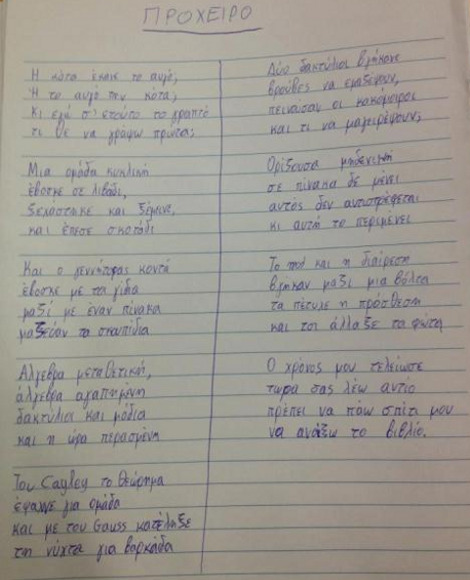 ΠΡΟΧΕΙΡΟ
Η κότα έκανε το αυγό;
Ή το αυγό την κότα;
Κι εγώ σ' ετούτο το γραπτό
τι θε να γράψω πρώτα;
Μια ομάδα κυκλική
έβοσκε σε λιβάδι,
ξεχάστηκε και ξέμεινε,
και έπεσε σκοτάδι
Και ο γεννήτορας κοντά
έβοσκε με τα γίδια
μαζί με έναν πίνακα
μαζεύαν τα σκουπίδια
Άλγεβρα μεταθετική,
άλγεβρα αγαπημένη
δακτύλια και μόδια
και η ώρα περασμένη
Του Cayley το θεώρημα
έψαχνε για ομάδα
και με του Gauss κατέληξε
τη νύχτα για βαρκάδα
Δύο δακτύλιοι βγήκανε
βρούβες να μαζέψουν,
πεινάσαν οι κακόμοιροι
και τι να μαγειρέψουν;
Ορίζουσα μηδενική
σε πίνακα δε μένει
αυτός δεν αντιστρέφεται
κι αυτή το περιμένει
Το και η διαίρεση
βγήκαν μαζί μια βόλτα
τα πέτυχε η πρόσθεση
και τσι άλλαξε τα φώτα
Ο χρόνος μου τελείωσε
τώρα σας λέω αντίο
πρέπει να πάω σπίτι μου
να ανοίξω το βιβλίο.